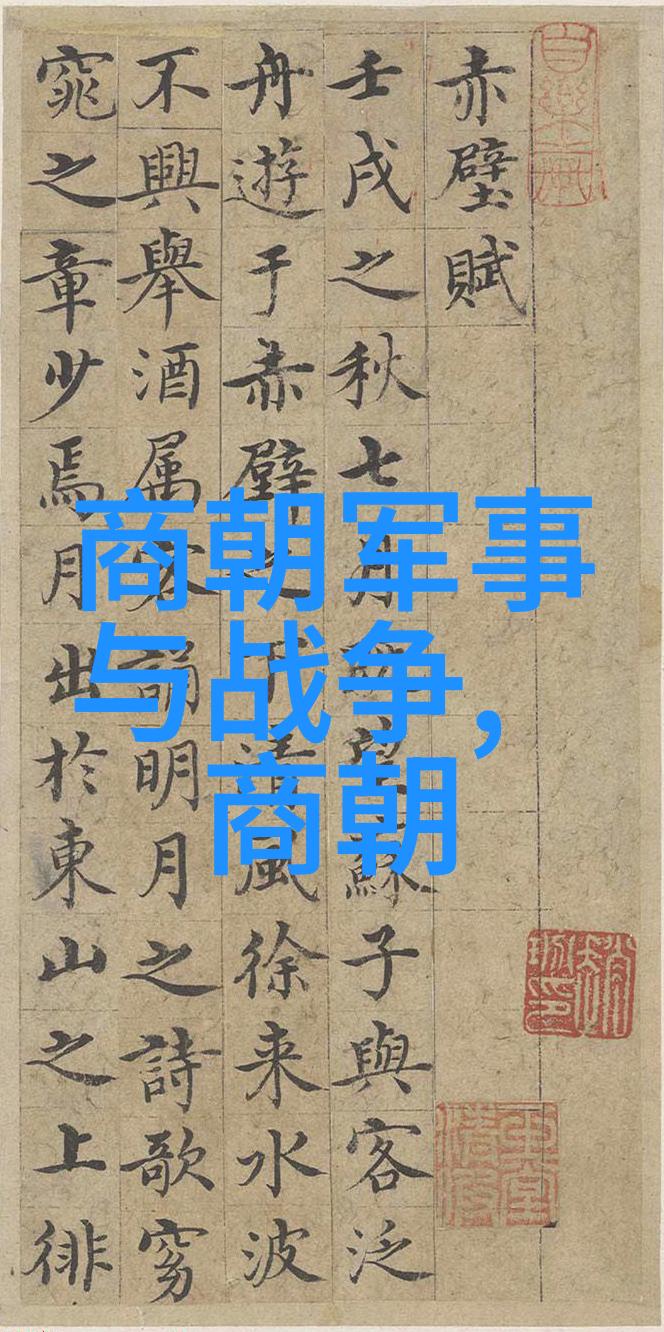 赤壁賦
壬戌之秋七月望蘇子與客泛
舟遊于赤壁之下清風徐来水波
不興舉酒属客誦明月之詩歌窈
窕之章少焉月出於東山之上徘
商朝军事
与战争,
商朝